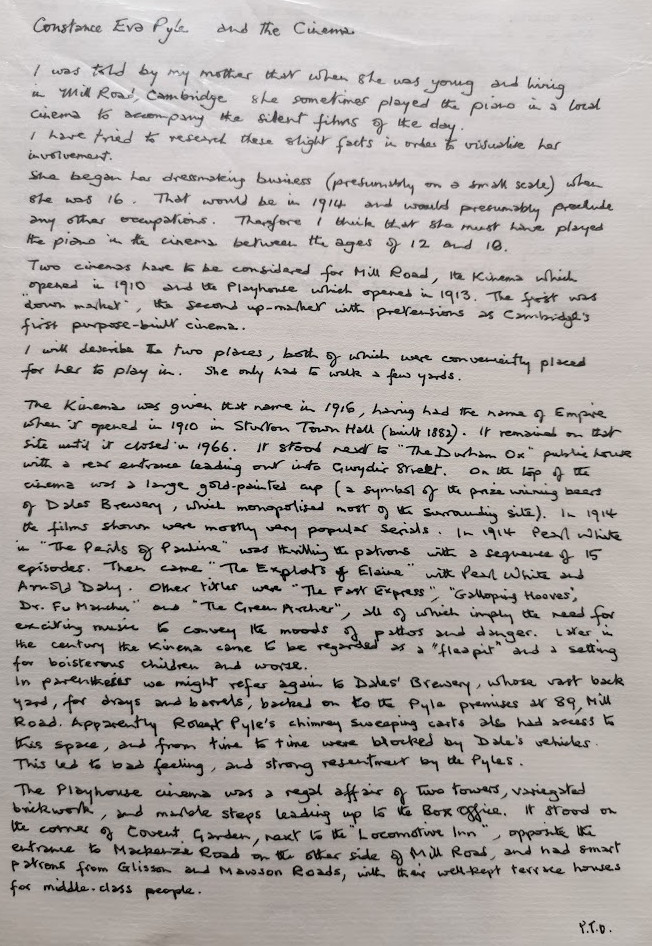 Constance Eva Pyle and the Cinema
I was told by my mother that when she was young and living
in Mill Road, Cambridge she sometimes played the piano in a local
cinema to accompany the silent films of the day.
I have tried to research these slight facts in order to visualise her
involvement.
She began her dressmaking business (presumably on a small scale) when
she was 16. That would be in 1914 and would presumably preclude
any other occupations. Therefore I think that she must have played
the piano in the cinema between the ages of 12 and 18.
Two cinemas have to be considered for Mill Road, the Kinema which
opened in 1910 and the Playhouse which opened in 1913. The first was
"down market", the second up-market with pretensions as Cambridge's
first purpose-built cinema.
I will describe the two places, both of which were conveniently placed
for her to play in. She only had to walk a few yards.
The Kinema was given that name in 1916, having had the name of Empire
when it opened in 1910 in Sturton Town Hall (built 1882). It remained on that
site until it closed in 1966. It stood next to "The Durham Ox" public house
with a rear entrance leading out into Gwydir Street. On the top of the
cinema was a large gold-painted cup (a symbol of the prize winning beers
of Dales Brewery, which monopolised most of the surrounding site). In 1914
the films shown were mostly very popular serials. In 1914 Pearl White
in "The Perils of Pauline" was thrilling the patrons with a sequence of 15
episodes. Then came "The Exploits of Elaine" with Pearl White and
Arnold Daly. Other titles were "The Fast Express", "Galloping Hooves",
Dr. Fu Manchu" and "The Green Archer", all of which imply the need for
exciting music to convey the moods of pathos and danger. Later in
the century the Kinema came to be regarded as a "fleapit" and a setting
for boisterous children and worse.
In parentheses we might refer again to Dales' Brewery, whose vast back
yard, for drays and barrels, backed on to the Pyle premises at 89, Mill
Road. Apparently Robert Pyle's chimney sweeping carts also had access to
this space, and from time to time were blocked by Dale's vehicles.
This led to bad feeling, and strong resentment by the Pyles.
The Playhouse cinema was a regal affair of two towers, variegated
brickwork, and marble steps leading up to the Box Office. It stood on
the corner of Covent Garden, next to the "Locomotive Inn", opposite the
entrance to Mackenzie Road on the other side of Mill Road, and had smart
patrons from Glisson and Mawson Roads, with their well-kept terrace houses
for middle-class people.
P.T.O.